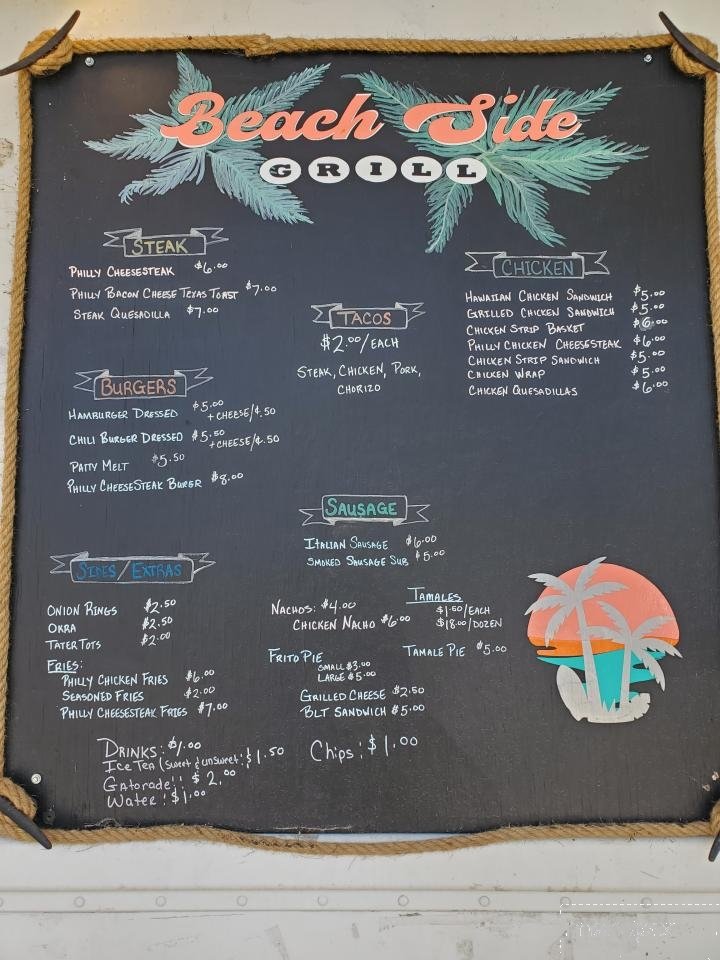 Beach Side
GRILL
STEAK
PHILLY CHEESESTEAK $6.00
PHILLY BACON CHEESE TEXAS TOAST $7.00
STEAK QUESADILLA $7.00
BURGERS
HAMBURGER DRESSED $5.00
+CHEESE/¢.50
CHILI BURGER DRESSED $5.50
+CHEESE/¢.50
PATTY MELT $5.50
PHILLY CHEESESTEAK BURGER $8.00
TACOS
$2.00/EACH
STEAK, CHICKEN, PORK,
CHORIZO
CHICKEN
HAWAIIAN CHICKEN SANDWICH $5.00
GRILLED CHICKEN SANDWICH $5.00
CHICKEN STRIP BASKET $6.00
PHILLY CHICKEN CHEESESTEAK $6.00
CHICKEN STRIP SANDWICH $5.00
CHICKEN WRAP $5.00
CHICKEN QUESADILLAS $6.00
SAUSAGE
ITALIAN SAUSAGE $6.00
SMOKED SAUSAGE SUB $5.00
SIDES/EXTRAS
ONION RINGS $2.50
OKRA $2.50
TATER TOTS $2.00
FRIES:
PHILLY CHICKEN FRIES $6.00
SEASONED FRIES $2.00
PHILLY CHEESESTEAK FRIES $7.00
NACHOS: $4.00
CHICKEN NACHO $6.00
FRITO PIE
SMALL $3.00
LARGE $5.00
GRILLED CHEESE $2.50
BLT SANDWICH $5.00
TAMALES
$1.50/EACH
$18.00/DOZEN
TAMALE PIE $5.00
DRINKS: $1.00
ICE TEA (SWEET & UNSWEET: $1.50
Gatorade: $2.00
Water: $1.00
Chips: $1.00